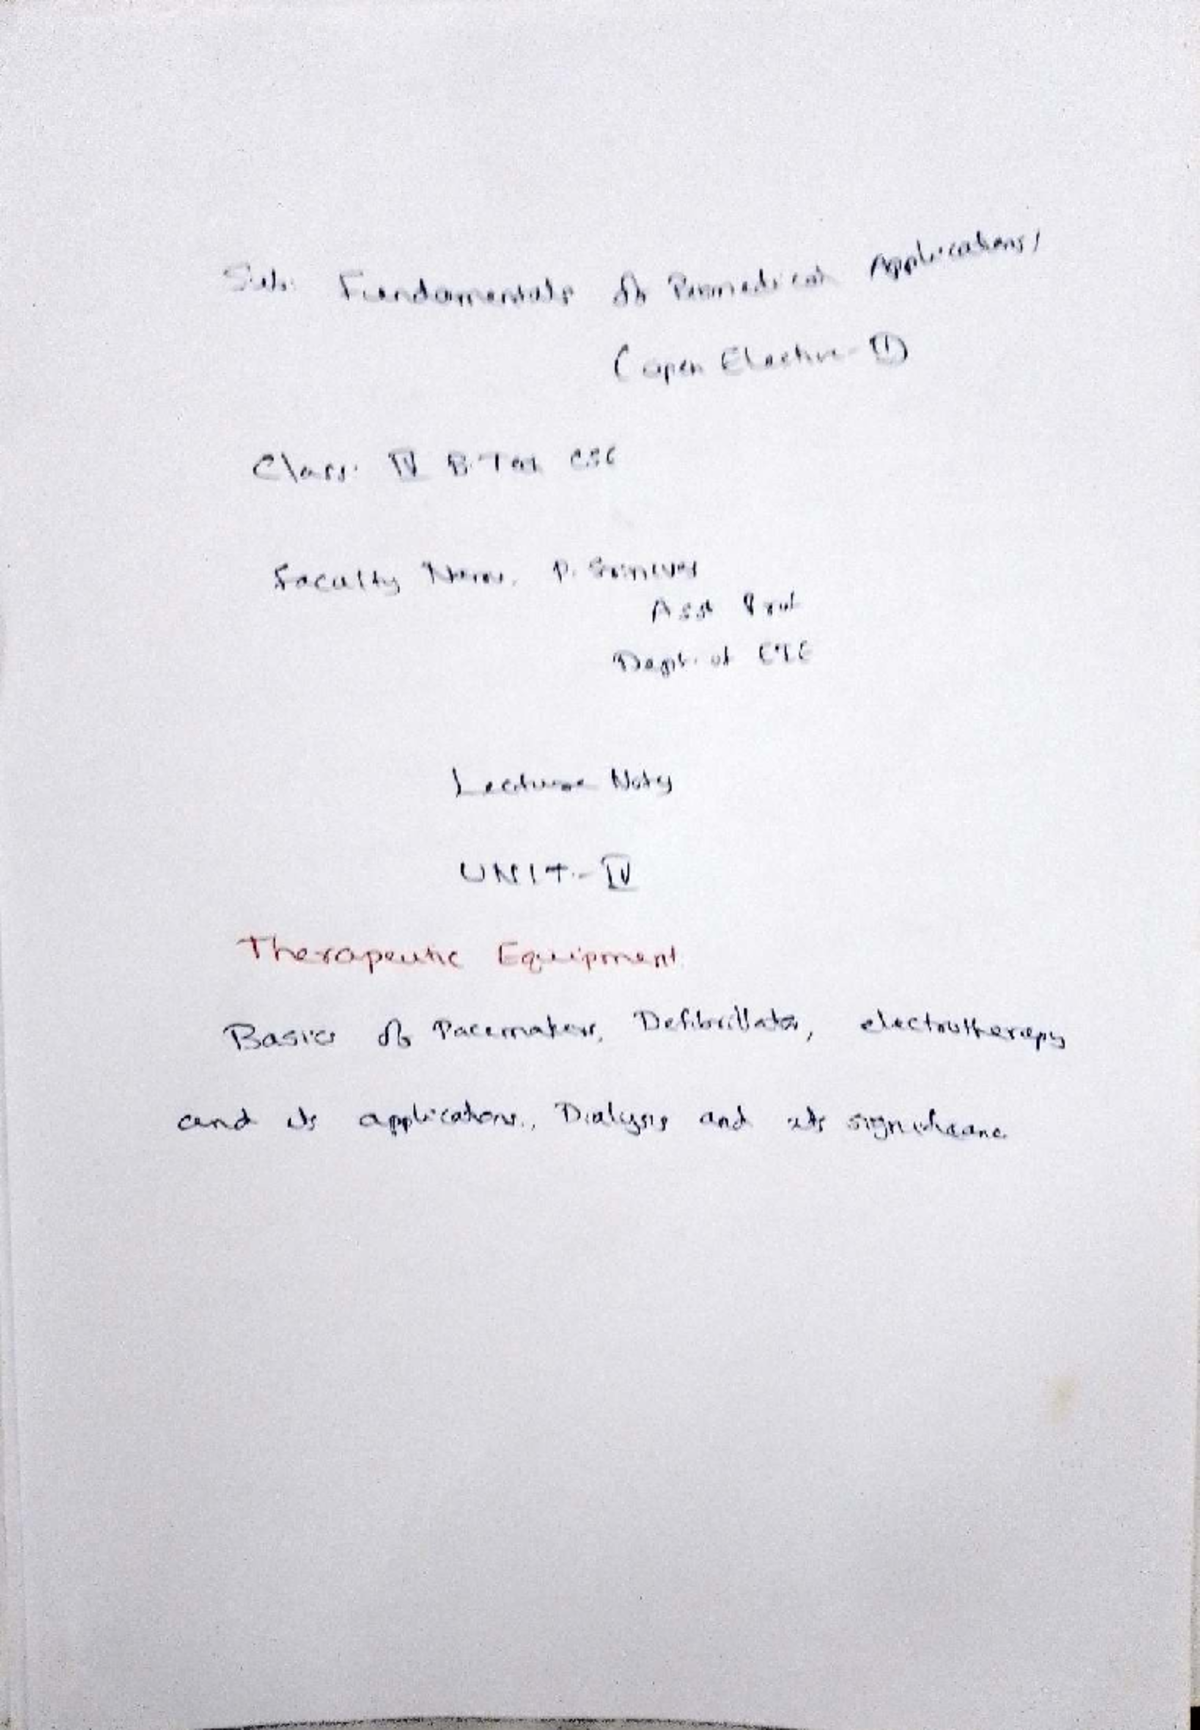 Sub: Fundamentals of Biomedical Applications
(open Elective-II)
Class: IV B.Tech CSE
Faculty Name: P. Srinivas
Asst Prof
Dept. of ECE
Lecture Notes
UNIT-IV
Therapeutic Equipment
Basics of Pacemakers, Defibrillator, electrotherapy
and its applications, Dialysis and its significance